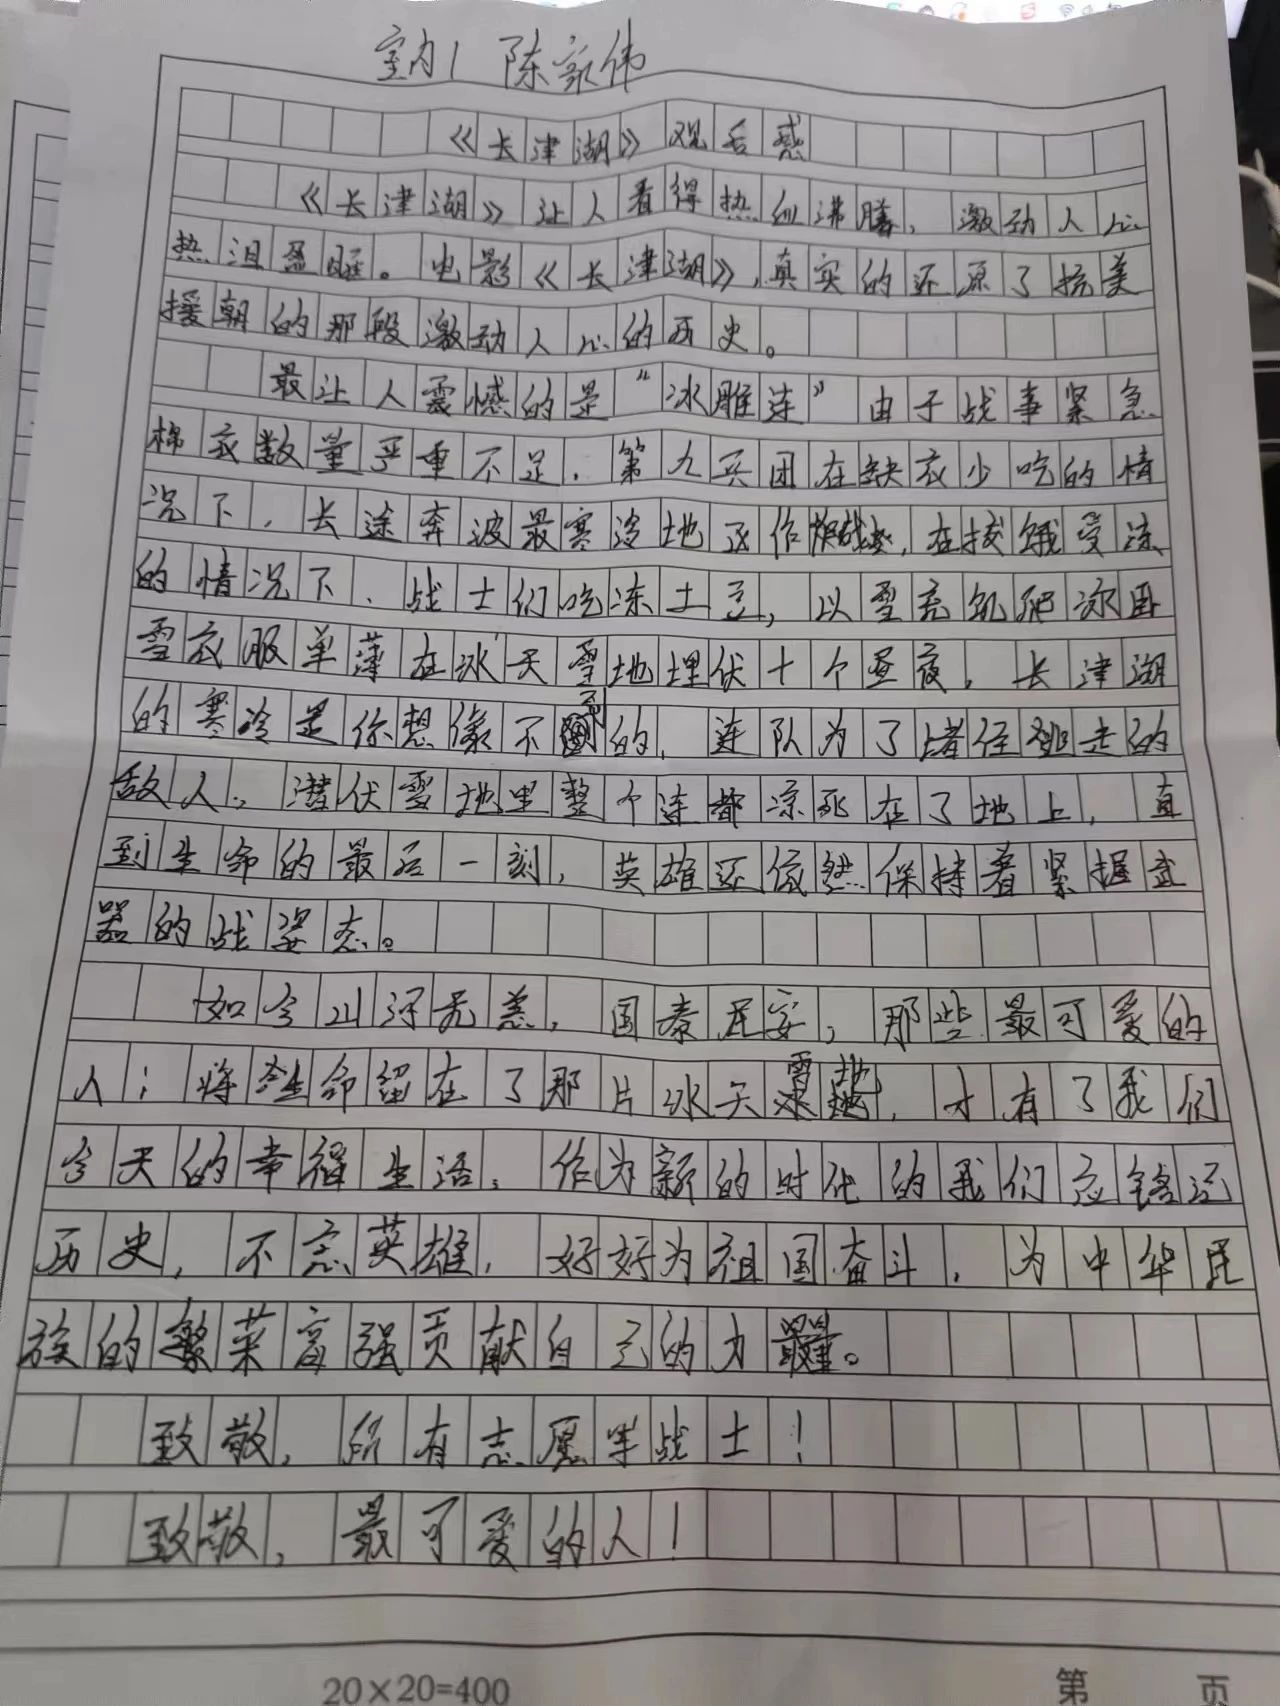 室内1 陈新伟
《长津湖》观后感
《长津湖》让人看得热血沸腾，激动人心
热泪盈眶。电影《长津湖》，真实的还原了抗美
援朝的那段激动人心的历史。
最让人震憾的是“冰雕连”由于战事紧急
棉衣数量严重不足，第九兵团在缺衣少吃的情
况下，长途奔波最寒冷地区作战，在挨饿受冻
的情况下、战士们吃冻土豆，以雪充饥爬冰卧
雪衣服单薄在冰天雪地埋伏十个昼夜，长津湖
的寒冷是你想像不到的，连队为了堵住逃走的
敌人，潜伏雪地里整个连都凉死在了地上，直
到生命的最后一刻，英雄还依然保持着紧握武
器的战姿态。
如今山河无恙，国泰民安，那些最可爱的
人；将生命留在了那片冰天雪地，才有了我们
今天的幸福生活。作为新的时代的我们应铭记
历史，不忘英雄，好好为祖国奋斗，为中华民
族的繁荣富强贡献自己的力量。
致敬，所有志愿军战士！
致敬，最可爱的人！
20×20=400
第 页